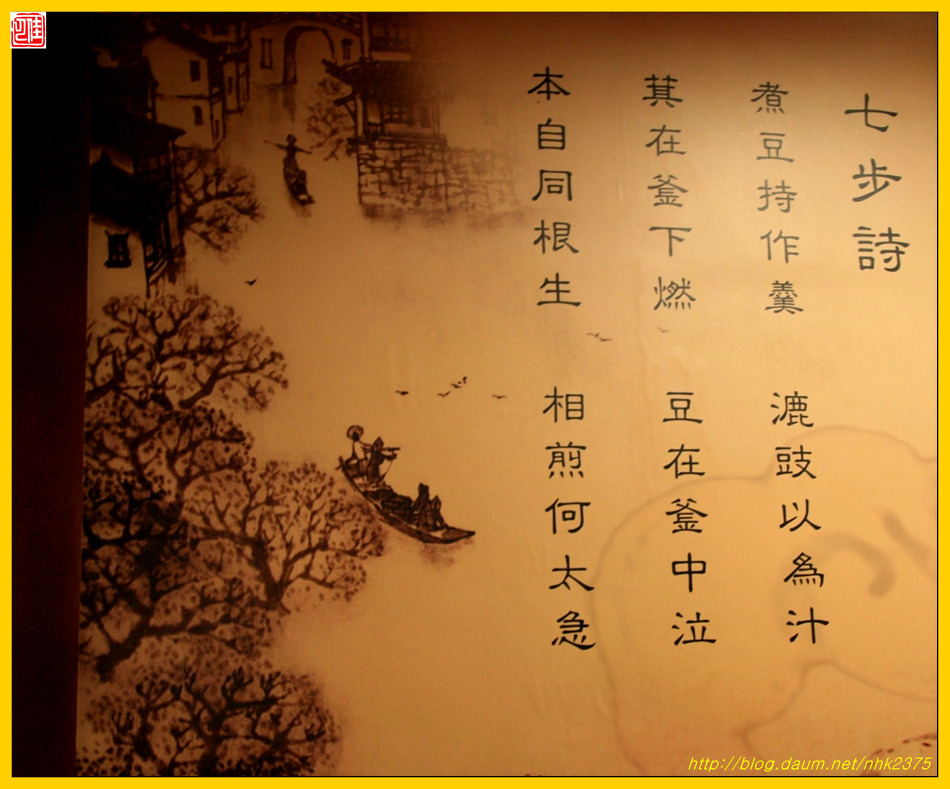 七步詩
煮豆持作羹 漉豉以為汁
萁在釜下燃 豆在釜中泣
本自同根生 相煎何太急
http://blog.daum.net/nhk2375